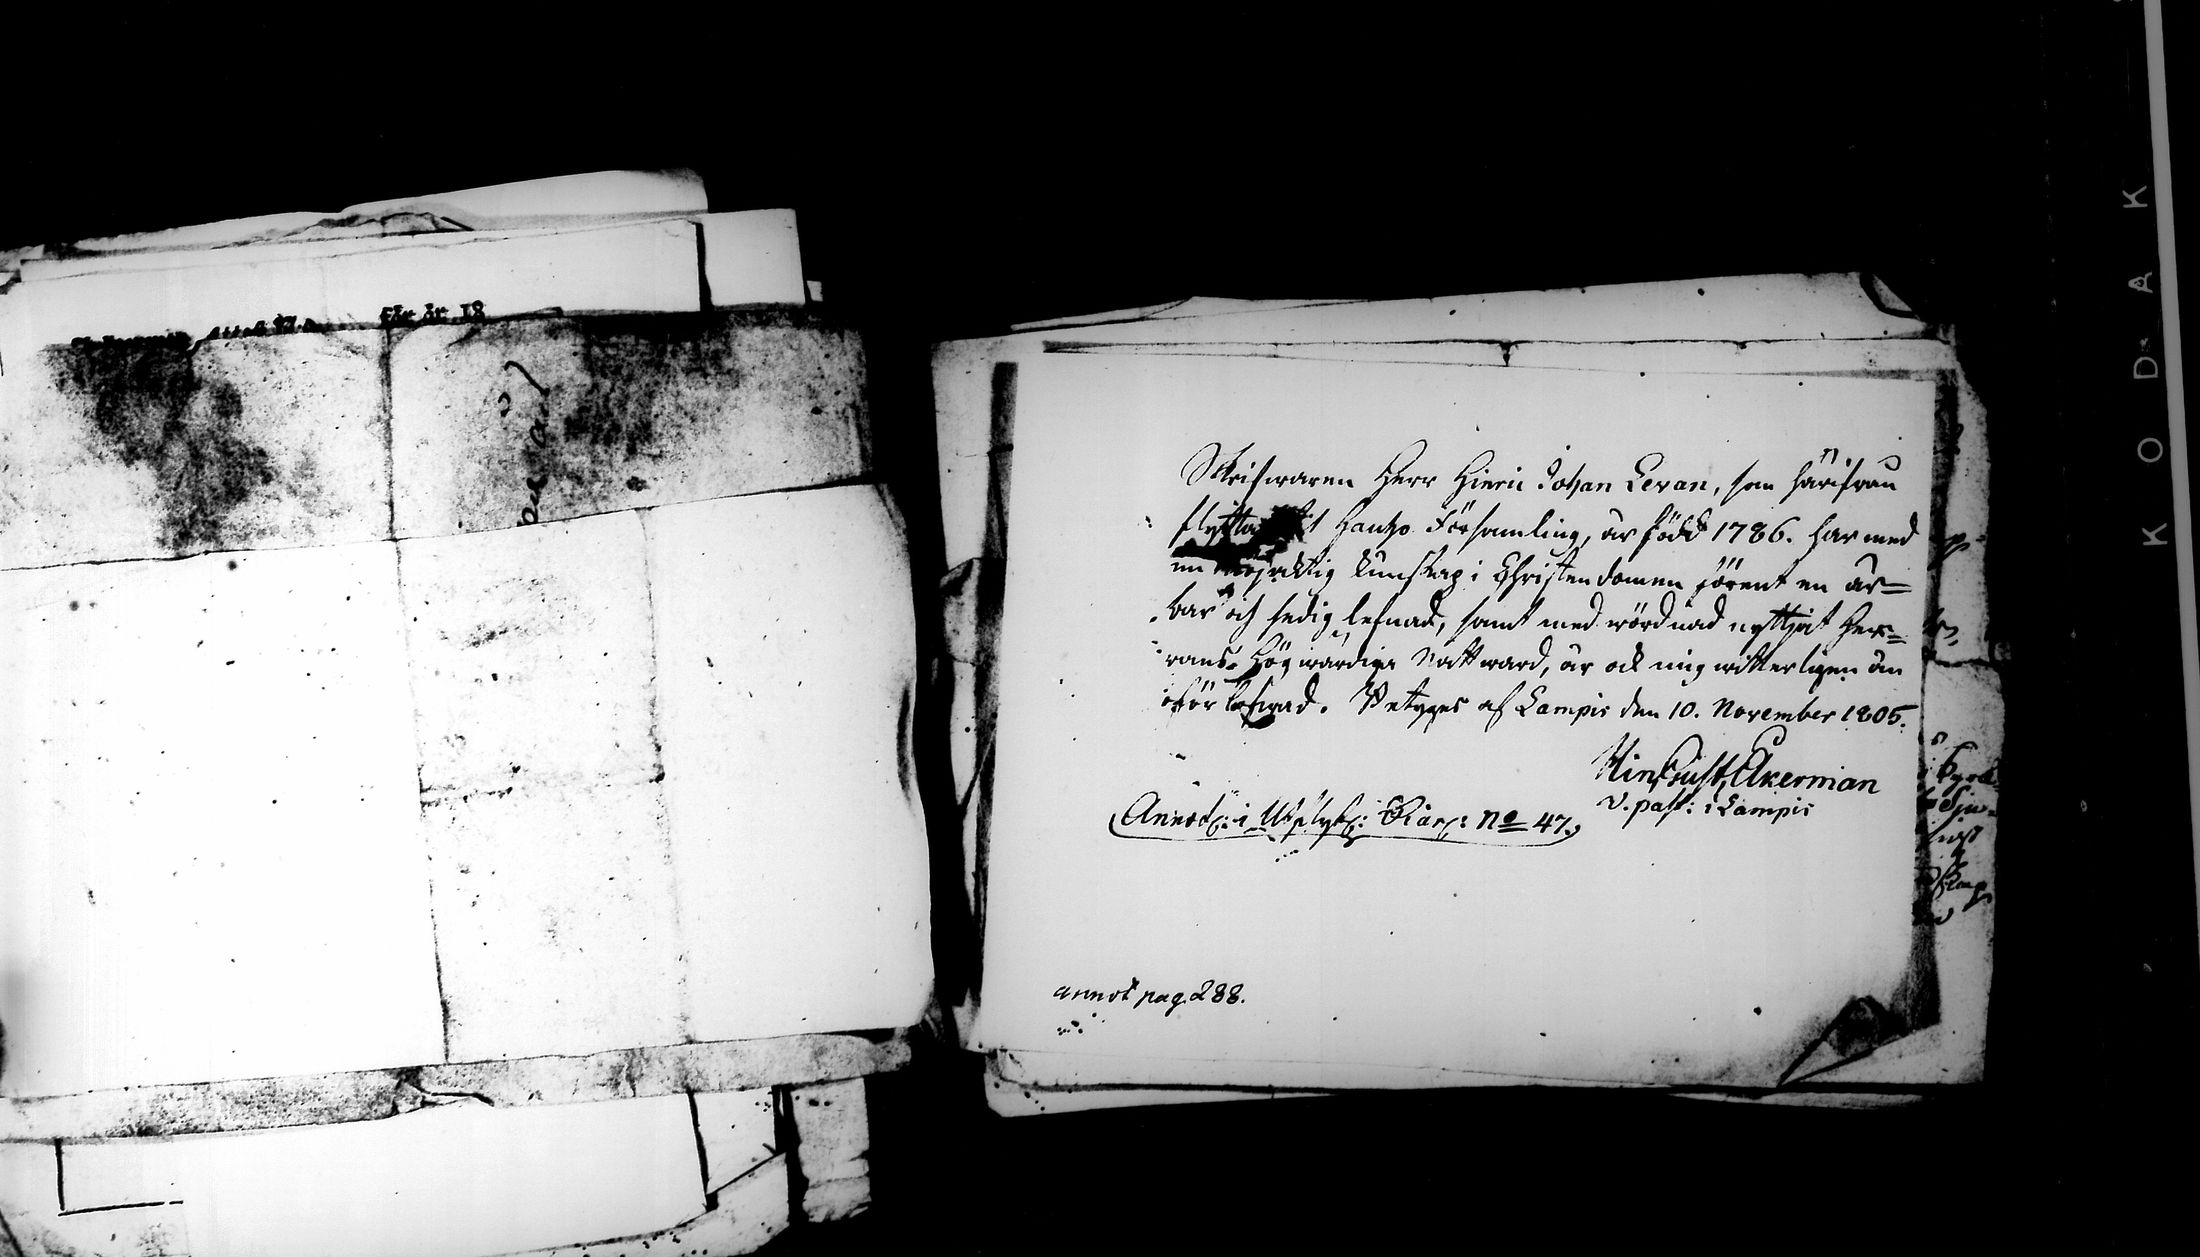 för år 18
Skrifwaren Herr Hinric Johan Levan, som härifrån
flytta t Hauho Församling, är född 1786. har med
en kunskap i Christendomen förent en är=
bar och sedig lefnad, samt med wördnad nyttjat Her=
rans Högwärdiga Nattward, är ock mig witterligen än
oförlofwad. Betyges af Lampis den 10. November 1805.
Akerman
V. past: i Lampis
Annot: i Utflytt: No 47.
annot pag 288.
KODAK